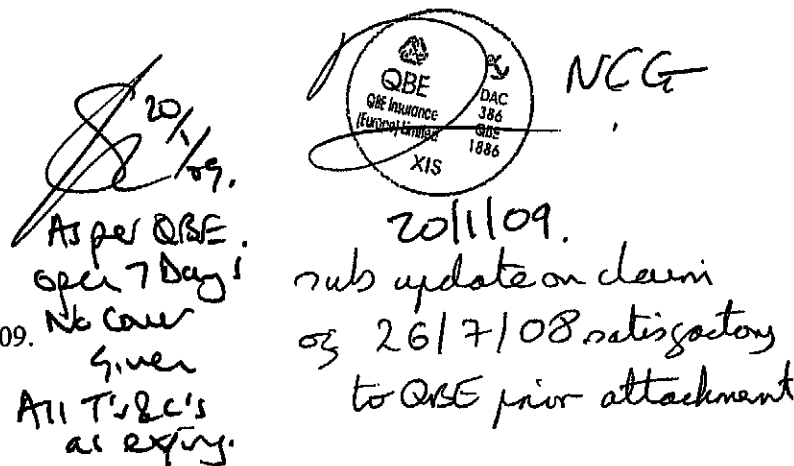 20/1/09.
As per QBE.
open 7 Days
No Cover
Given
All T's & C's
as expiry.
09.
QBE
QBE Insurance
(Europe) Limited
XIS
DAC
386
QBE
1886
NCG
20/1/09.
sub update on claim
of 26/7/08 satisfactory
to QBE prior attachment